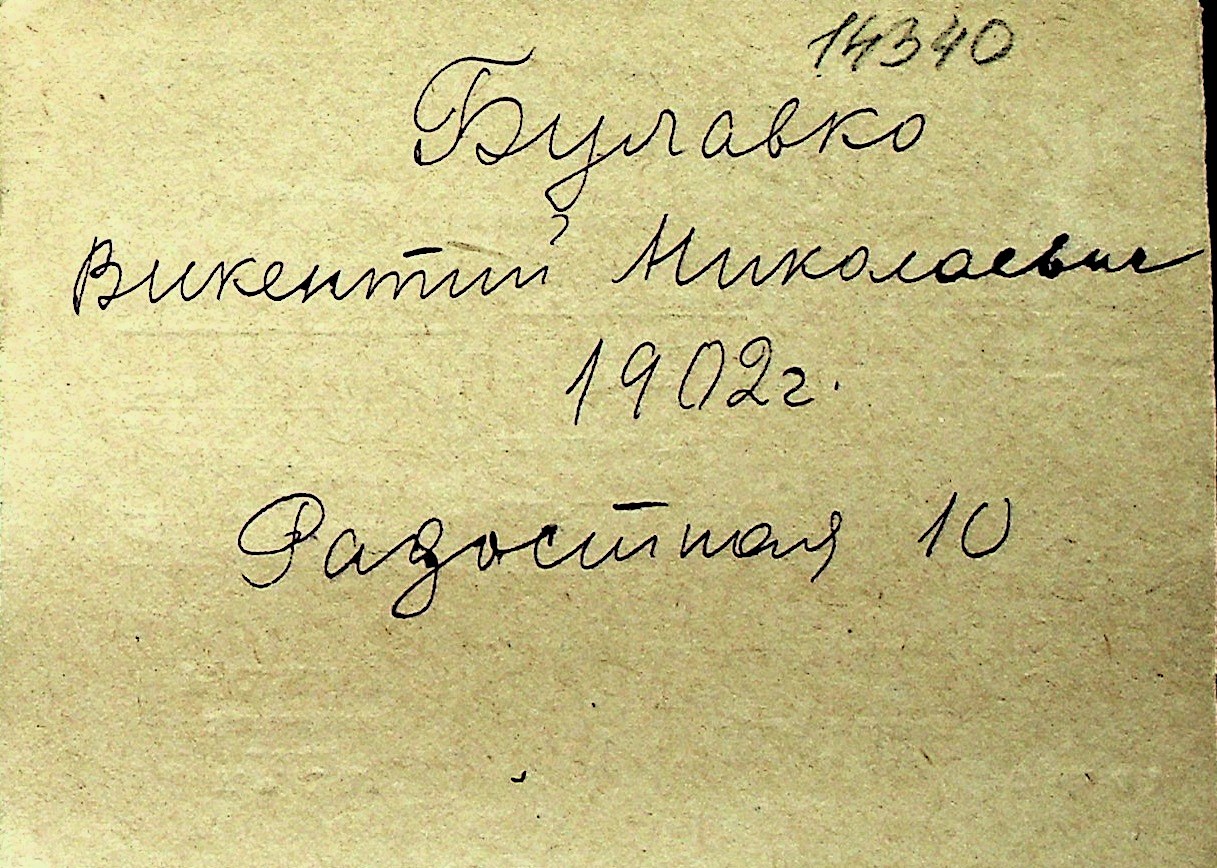 14340
Булавко
Викентий Николаевич
1902г.
Радостная 10